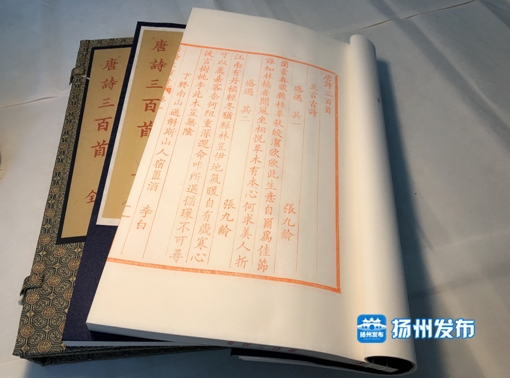 唐詩三百首
五言古詩
感遇 其一 張九齡
蘭葉春葳蕤桂華秋皎潔欣欣此生意自爾爲佳節
誰知林棲者聞風坐相悅草木有本心何求美人折
感遇 其二 張九齡
江南有丹橘經冬猶綠林豈伊地氣暖自有歲寒心
可以薦嘉客奈何阻重深運命所遇循環不可尋
徒言樹桃李此木豈無陰
下終南山過斛斯山人宿置酒 李白
唐詩三百首
唐詩三百首
扬州发布
扬州发布